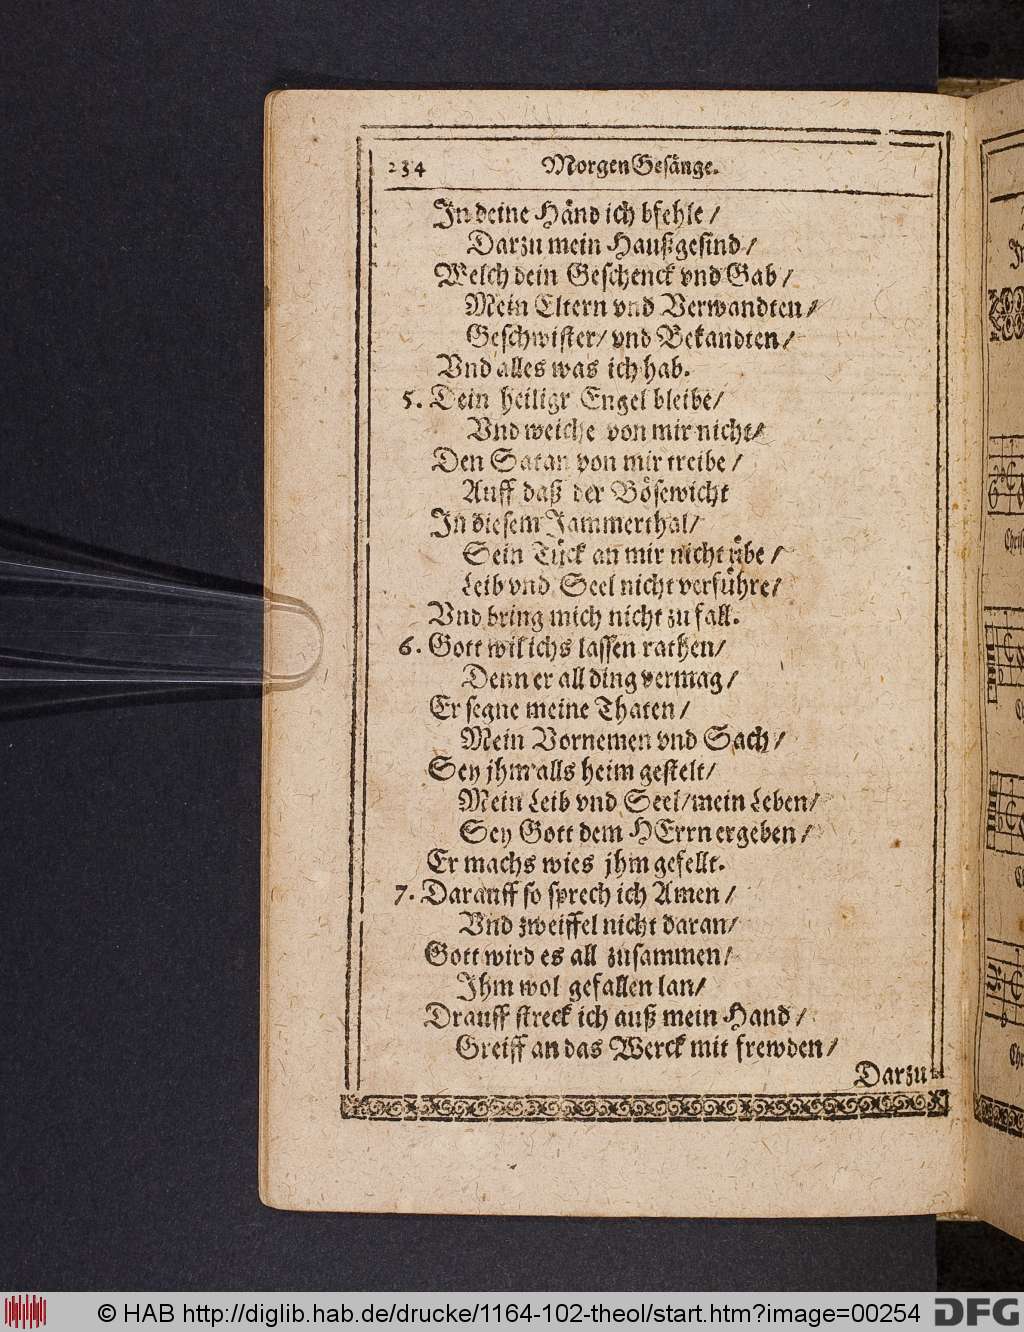 234 MorgenGesänge.
In deine Händ ich bfehle /
Darzu mein Haußgesind /
Welch dein Geschenck vnd Gab /
Mein Eltern vnd Verwandten /
Geschwister / vnd Bekandten /
Vnd alles was ich hab.
5. Dein heiligr Engel bleibe /
Vnd weiche von mir nicht /
Den Satan von mir treibe /
Auff daß der Bösewicht
In diesem Jammerthal /
Sein Tück an mir nicht übe /
Leib vnd Seel nicht verführe /
Vnd bring mich nicht zu fall.
6. Gott wil ichs lassen rathen /
Denn er all ding vermag /
Er segne meine Thaten /
Mein Vornemen vnd Sach /
Sey jhm alls heim gestelt /
Mein Leib vnd Seel / mein Leben /
Sey Gott dem HErrn ergeben /
Er machs wies jhm gefellt.
7. Darauff so sprech ich Amen /
Vnd zweiffel nicht daran /
Gott wird es all zusammen /
Ihm wol gefallen lan /
Drauff streck ich auß mein Hand /
Greiff an das Werck mit frewden /
Darzu
© HAB http://diglib.hab.de/drucke/1164-102-theol/start.htm?image=00254 DFG